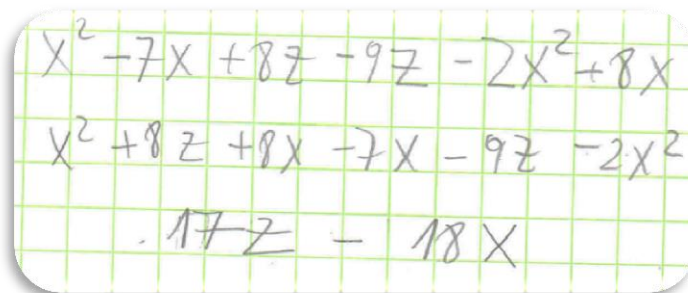 x² -7x +8z -9z -2x² +8x
x² +8z +8x -7x -9z -2x²
17z - 18x